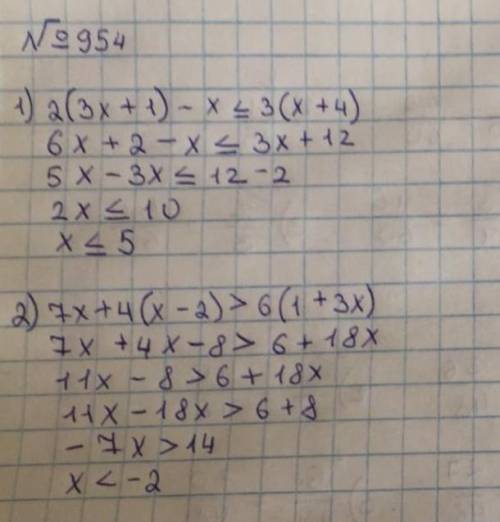 №954
1) 2(3x+1) - x ≤ 3(x+4)
6x + 2 - x ≤ 3x + 12
5x - 3x ≤ 12 - 2
2x ≤ 10
x ≤ 5
2) 7x+4(x-2) > 6(1+3x)
7x + 4x - 8 > 6 + 18x
11x - 8 > 6 + 18x
11x - 18x > 6 + 8
- 7x > 14
x < -2